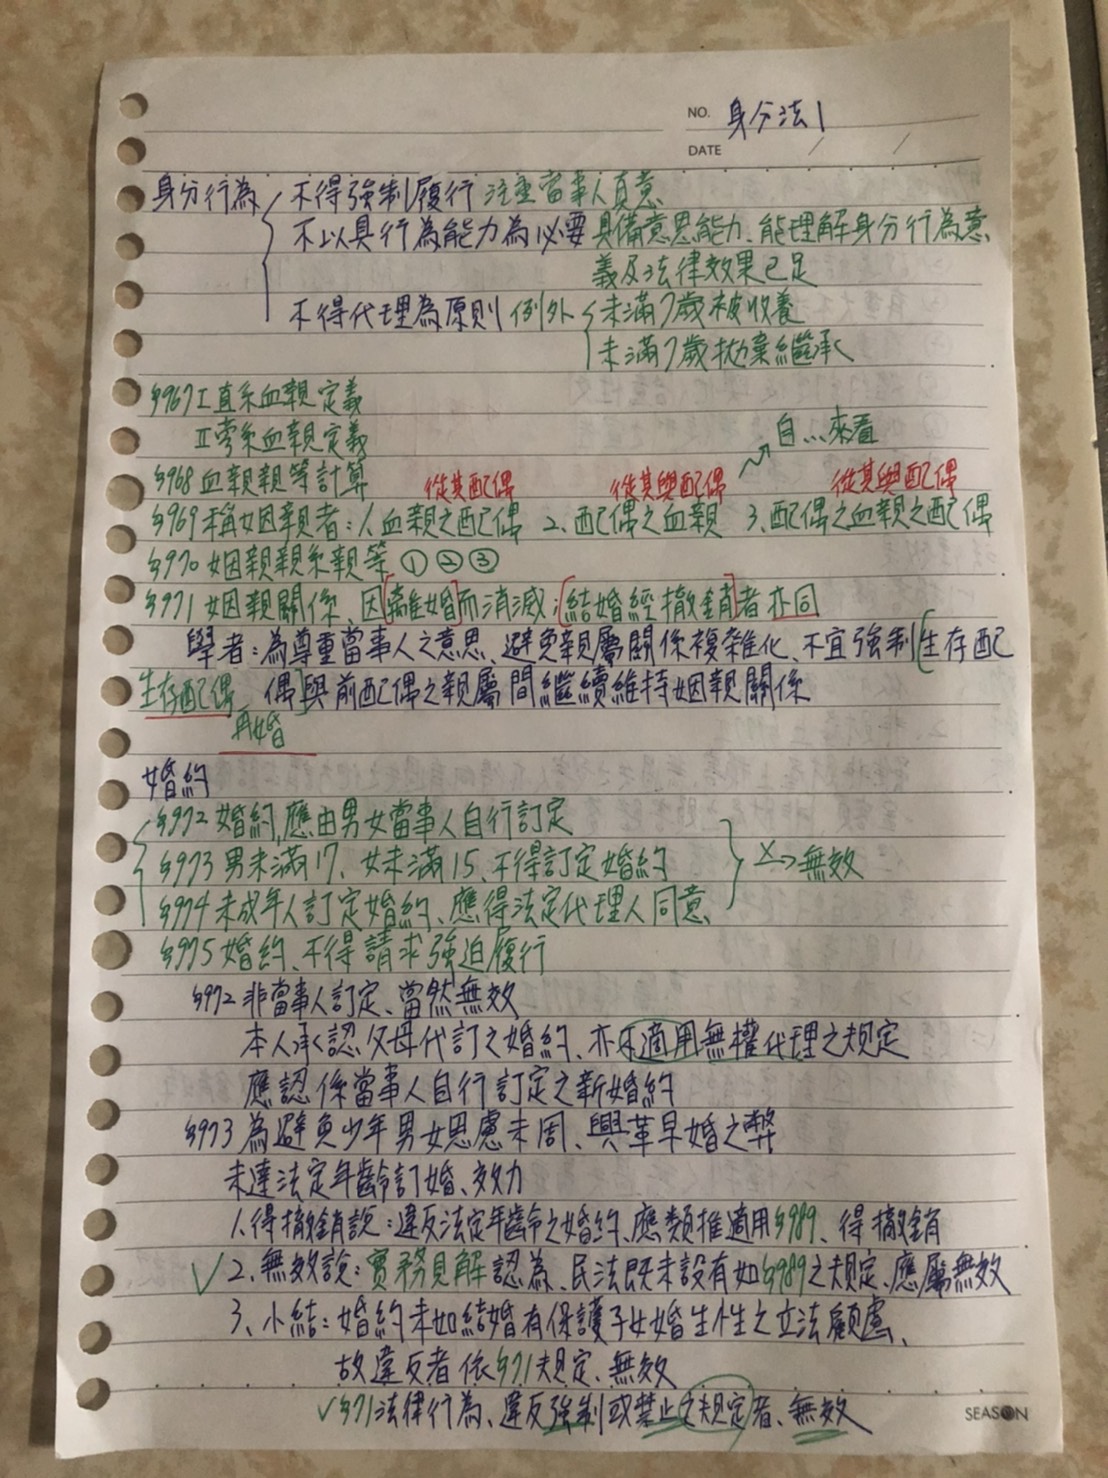 NO. 身分法1
DATE / /
身分行為 不得強制履行 注重當事人真意
不以具行為能力為必要 具備意思能力、能理解身分行為意
義及法律效果已足
不得代理為原則 例外 未滿7歲被收養
未滿7歲拋棄繼承
§967 I 直系血親定義
II 旁系血親定義
自…來看
§968 血親親等計算 從其配偶 從其與配偶 從其與配偶
§969 稱姻親者:1.血親之配偶 2.配偶之血親 3.配偶之血親之配偶
§970 姻親親系親等 ① ② ③
§971 姻親關係、因[離婚]而消滅;[結婚經撤銷]者亦同
學者:為尊重當事人之意思、避免親屬關係複雜化、不宜強制[生存配
生存配偶 偶]與前配偶之親屬間繼續維持姻親關係
再婚
婚約
§972 婚約,應由男女當事人自行訂定
§973 男未滿17、女未滿15、不得訂定婚約 X→無效
§974 未成年人訂定婚約、應得法定代理人同意
§975 婚約、不得請求強迫履行
§972 非當事人訂定、當然無效
本人承認父母代訂之婚約、亦不適用無權代理之規定
應認係當事人自行訂定之新婚約
§973 為避免少年男女思慮未周、興革早婚之弊
未達法定年齡訂婚、效力
1.得撤銷說:違反法定年齡之婚約、應類推適用§989、得撤銷
✓2.無效說:實務見解認為、民法既未設有如§989之規定、應屬無效
3.小結:婚約未如結婚有保護子女婚生性之立法顧慮、
故違反者依§71規定、無效
✓§71法律行為、違反強制或禁止之規定者、無效
SEASON